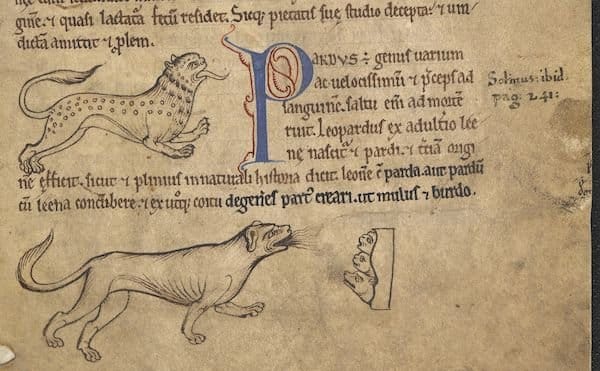 gine. ⁊ quasi lactata fetu residet. Sicq; pietatis sue studio decepta. ⁊ uin
dictam amittit ⁊ plem.
PARDVS ÷ genus uarium
ac uelocissimū ⁊ p̄ceps ad
sanguinē. saltu em̄ ad mortē
ruit. Leopardus ex adultio lee
ne nascit᷑ ⁊ pardi. ⁊ t̄ciā origi
nē efficit. sicut ⁊ plinius in naturali historia dicit. leonē c̄ parda. aut pardū
cū leena concūbere. ⁊ ex utroq; coitu degen̄es part᷒ creari. ut mulus ⁊ burdo.
Solinus: ibid.
pag: 241.